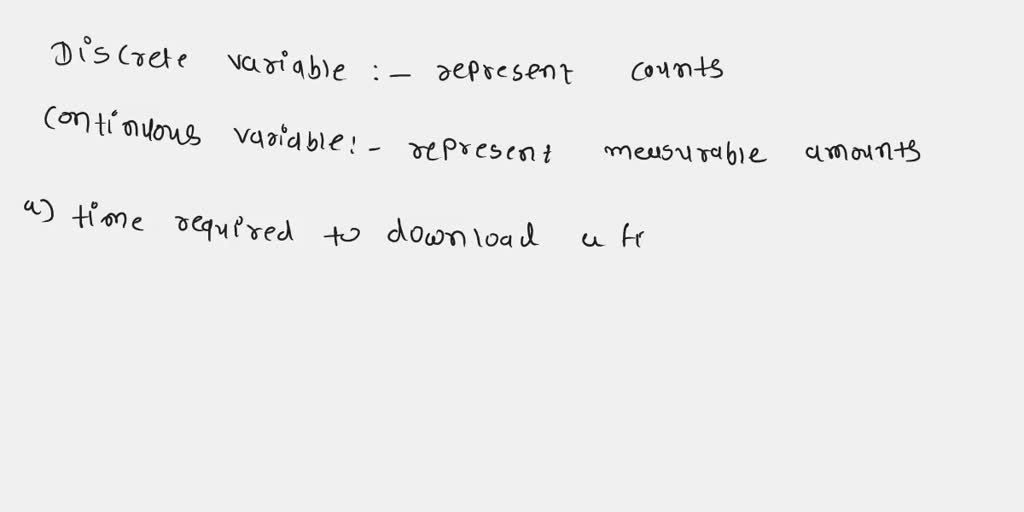 Discrete variable :- represent counts
Continuous variable :- represent measurable amounts
a) time required to download a